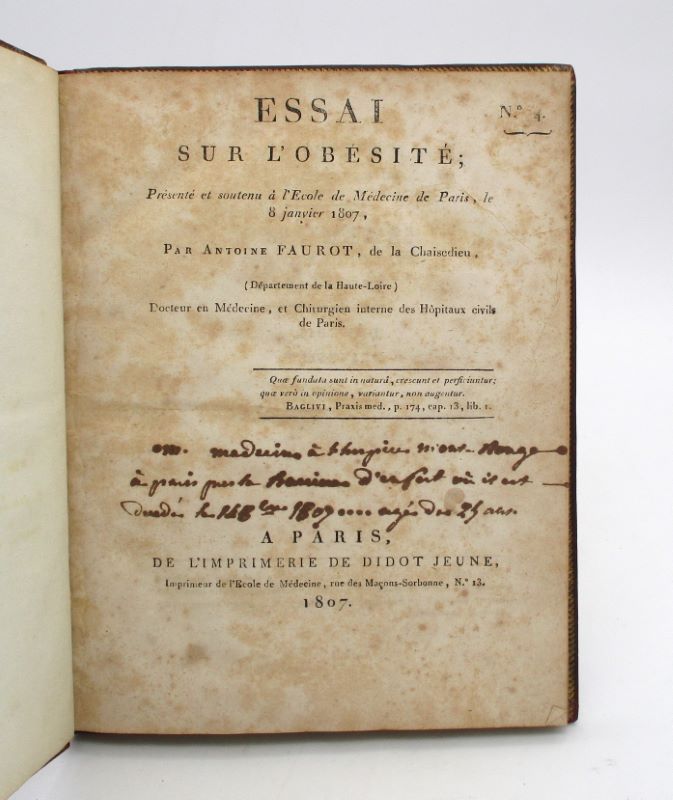 ESSAI
N.º 4.
SUR L'OBÉSITÉ;
Présenté et soutenu à l'Ecole de Médecine de Paris, le
8 janvier 1807,
PAR ANTOINE FAUROT, de la Chaisedieu,
(Département de la Haute-Loire)
Docteur en Médecine, et Chirurgien interne des Hôpitaux civils
de Paris.
Quæ fundata sunt in naturâ, crescunt et perficiuntur;
quæ verò in opinione, variantur, non augentur.
BAGLIVI, Praxis med., p. 174, cap. 13, lib. 1.
medecin à
à paris d'enfert où il est
1807 agés des 25 ans.
A PARIS,
DE L'IMPRIMERIE DE DIDOT JEUNE,
Imprimeur de l'Ecole de Médecine, rue des Maçons-Sorbonne, N.º 13.
1807.